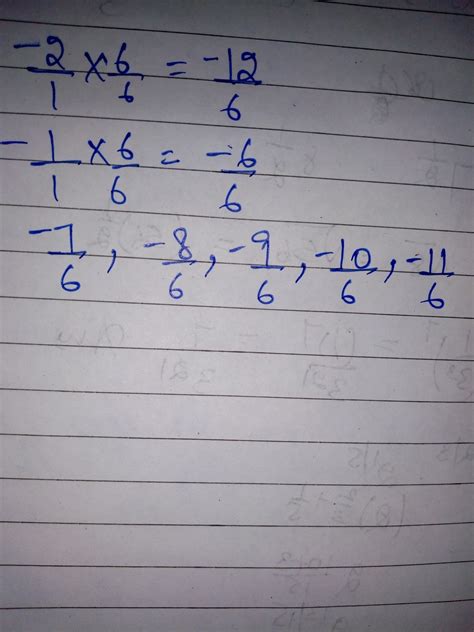 -2/1 × 6/6 = -12/6
-1/1 × 6/6 = -6/6
-7/6, -8/6, -9/6, -10/6, -11/6